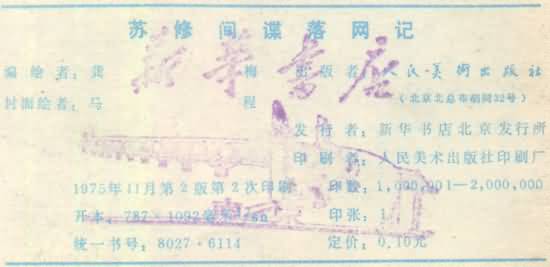 苏修间谍落网记
编绘者：龚 梅 出版者：人民美术出版社
封面绘者：马 程 （北京北总布胡同32号）
发行者：新华书店北京发行所
印刷者：人民美术出版社印刷厂
1975年11月第2版第2次印刷 印数：1,000,001—2,000,000
开本：787×1092毫米 印张：1
统一书号：8027·6114 定价：0.10元
新华书店